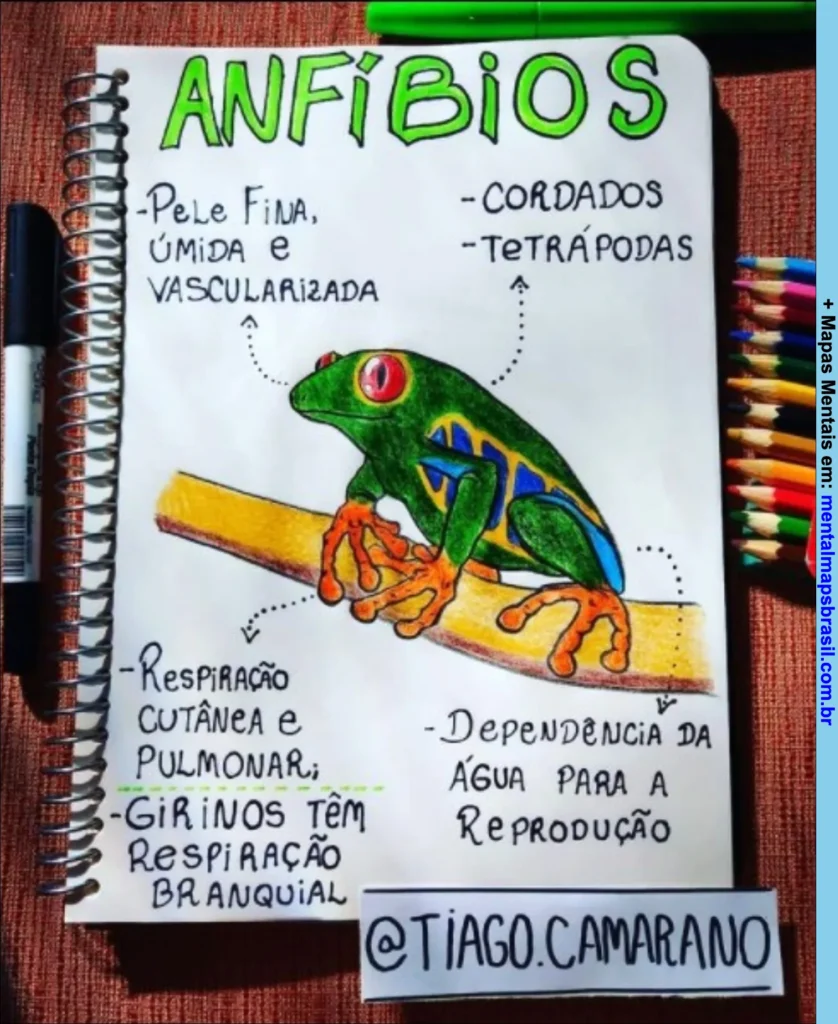 ANFÍBIOS
-PELE FINA,
ÚMIDA E
VASCULARIZADA
-CORDADOS
-TETRÁPODAS
-RESPIRAÇÃO
CUTÂNEA E
PULMONAR;
-GIRINOS TÊM
RESPIRAÇÃO
BRANQUIAL
-DEPENDÊNCIA DA
ÁGUA PARA A
REPRODUÇÃO
@TIAGO.CAMARANO
+ Mapas Mentais em: mentalmapsbrasil.com.br